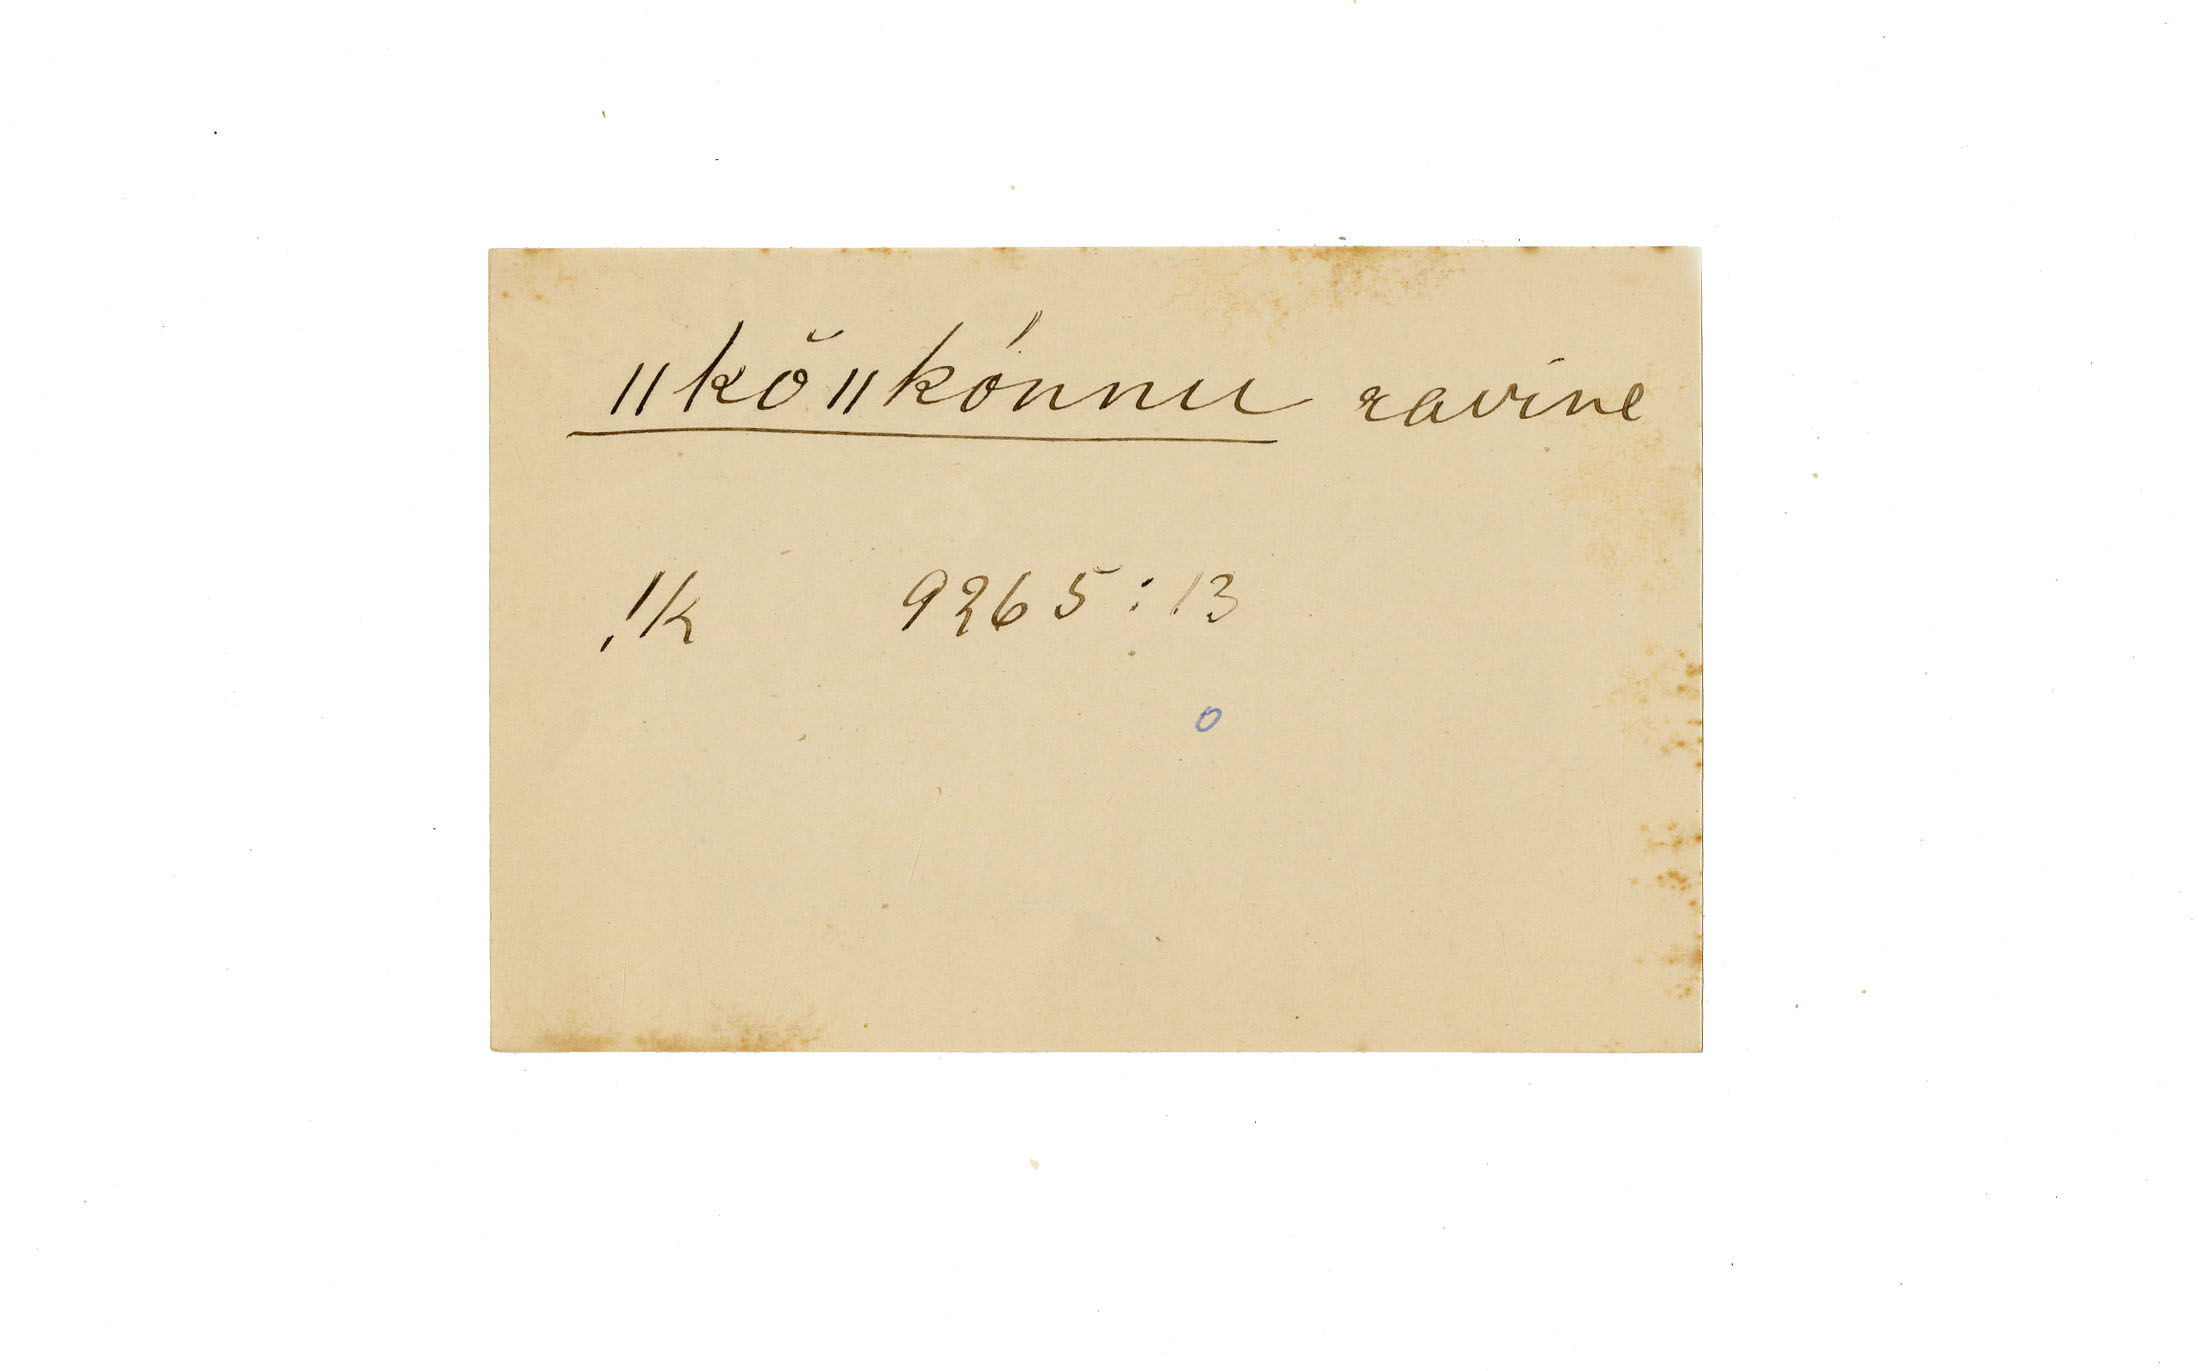 ǁkŏǁkónnu ravine
!k 9265:13
o